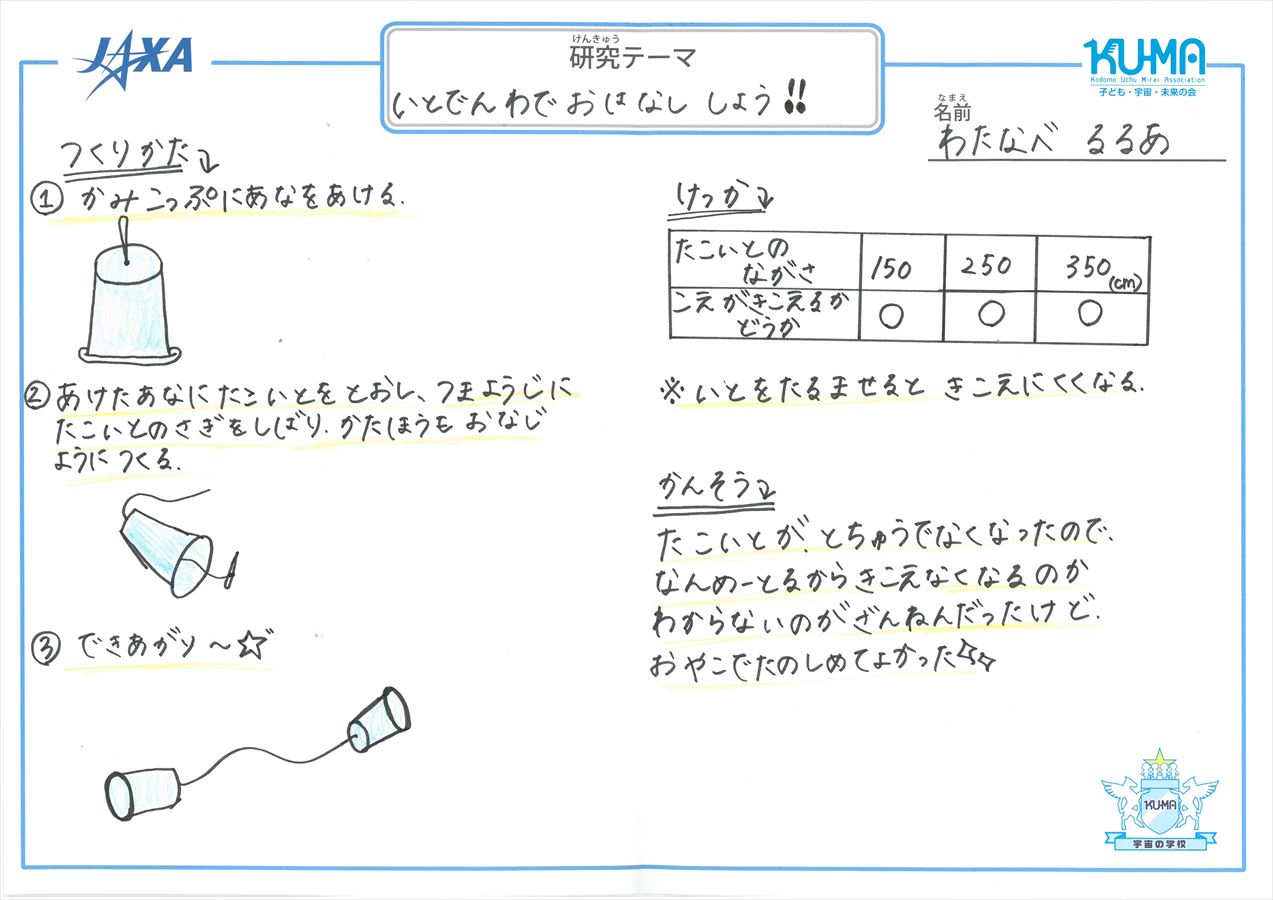 JAXA
けんきゅう
研究テーマ
いとでんわで おはなし しよう!!
KU-MA
Kodomo Uchu Mirai Association
子ども・宇宙・未来の会
なまえ
名前
わたなべ るるあ
つくりかた
① かみこっぷにあなをあける.
② あけたあなに たこいとを とおし、つまようじに
たこいとのさきをしばり. かたほうも おなじ
ように つくる.
③ できあがり〜☆
けっか
たこいとの
ながさ
150
250
350(cm)
こえがきこえるか
どうか
○
○
○
※ いとをたるませると きこえにくくなる.
かんそう
たこいとが、とちゅうでなくなったので、
なんめーとるからきこえなくなるのか
わからないのがざんねんだったけど.
おやこでたのしめてよかった☆☆
KU-MA
宇宙の学校